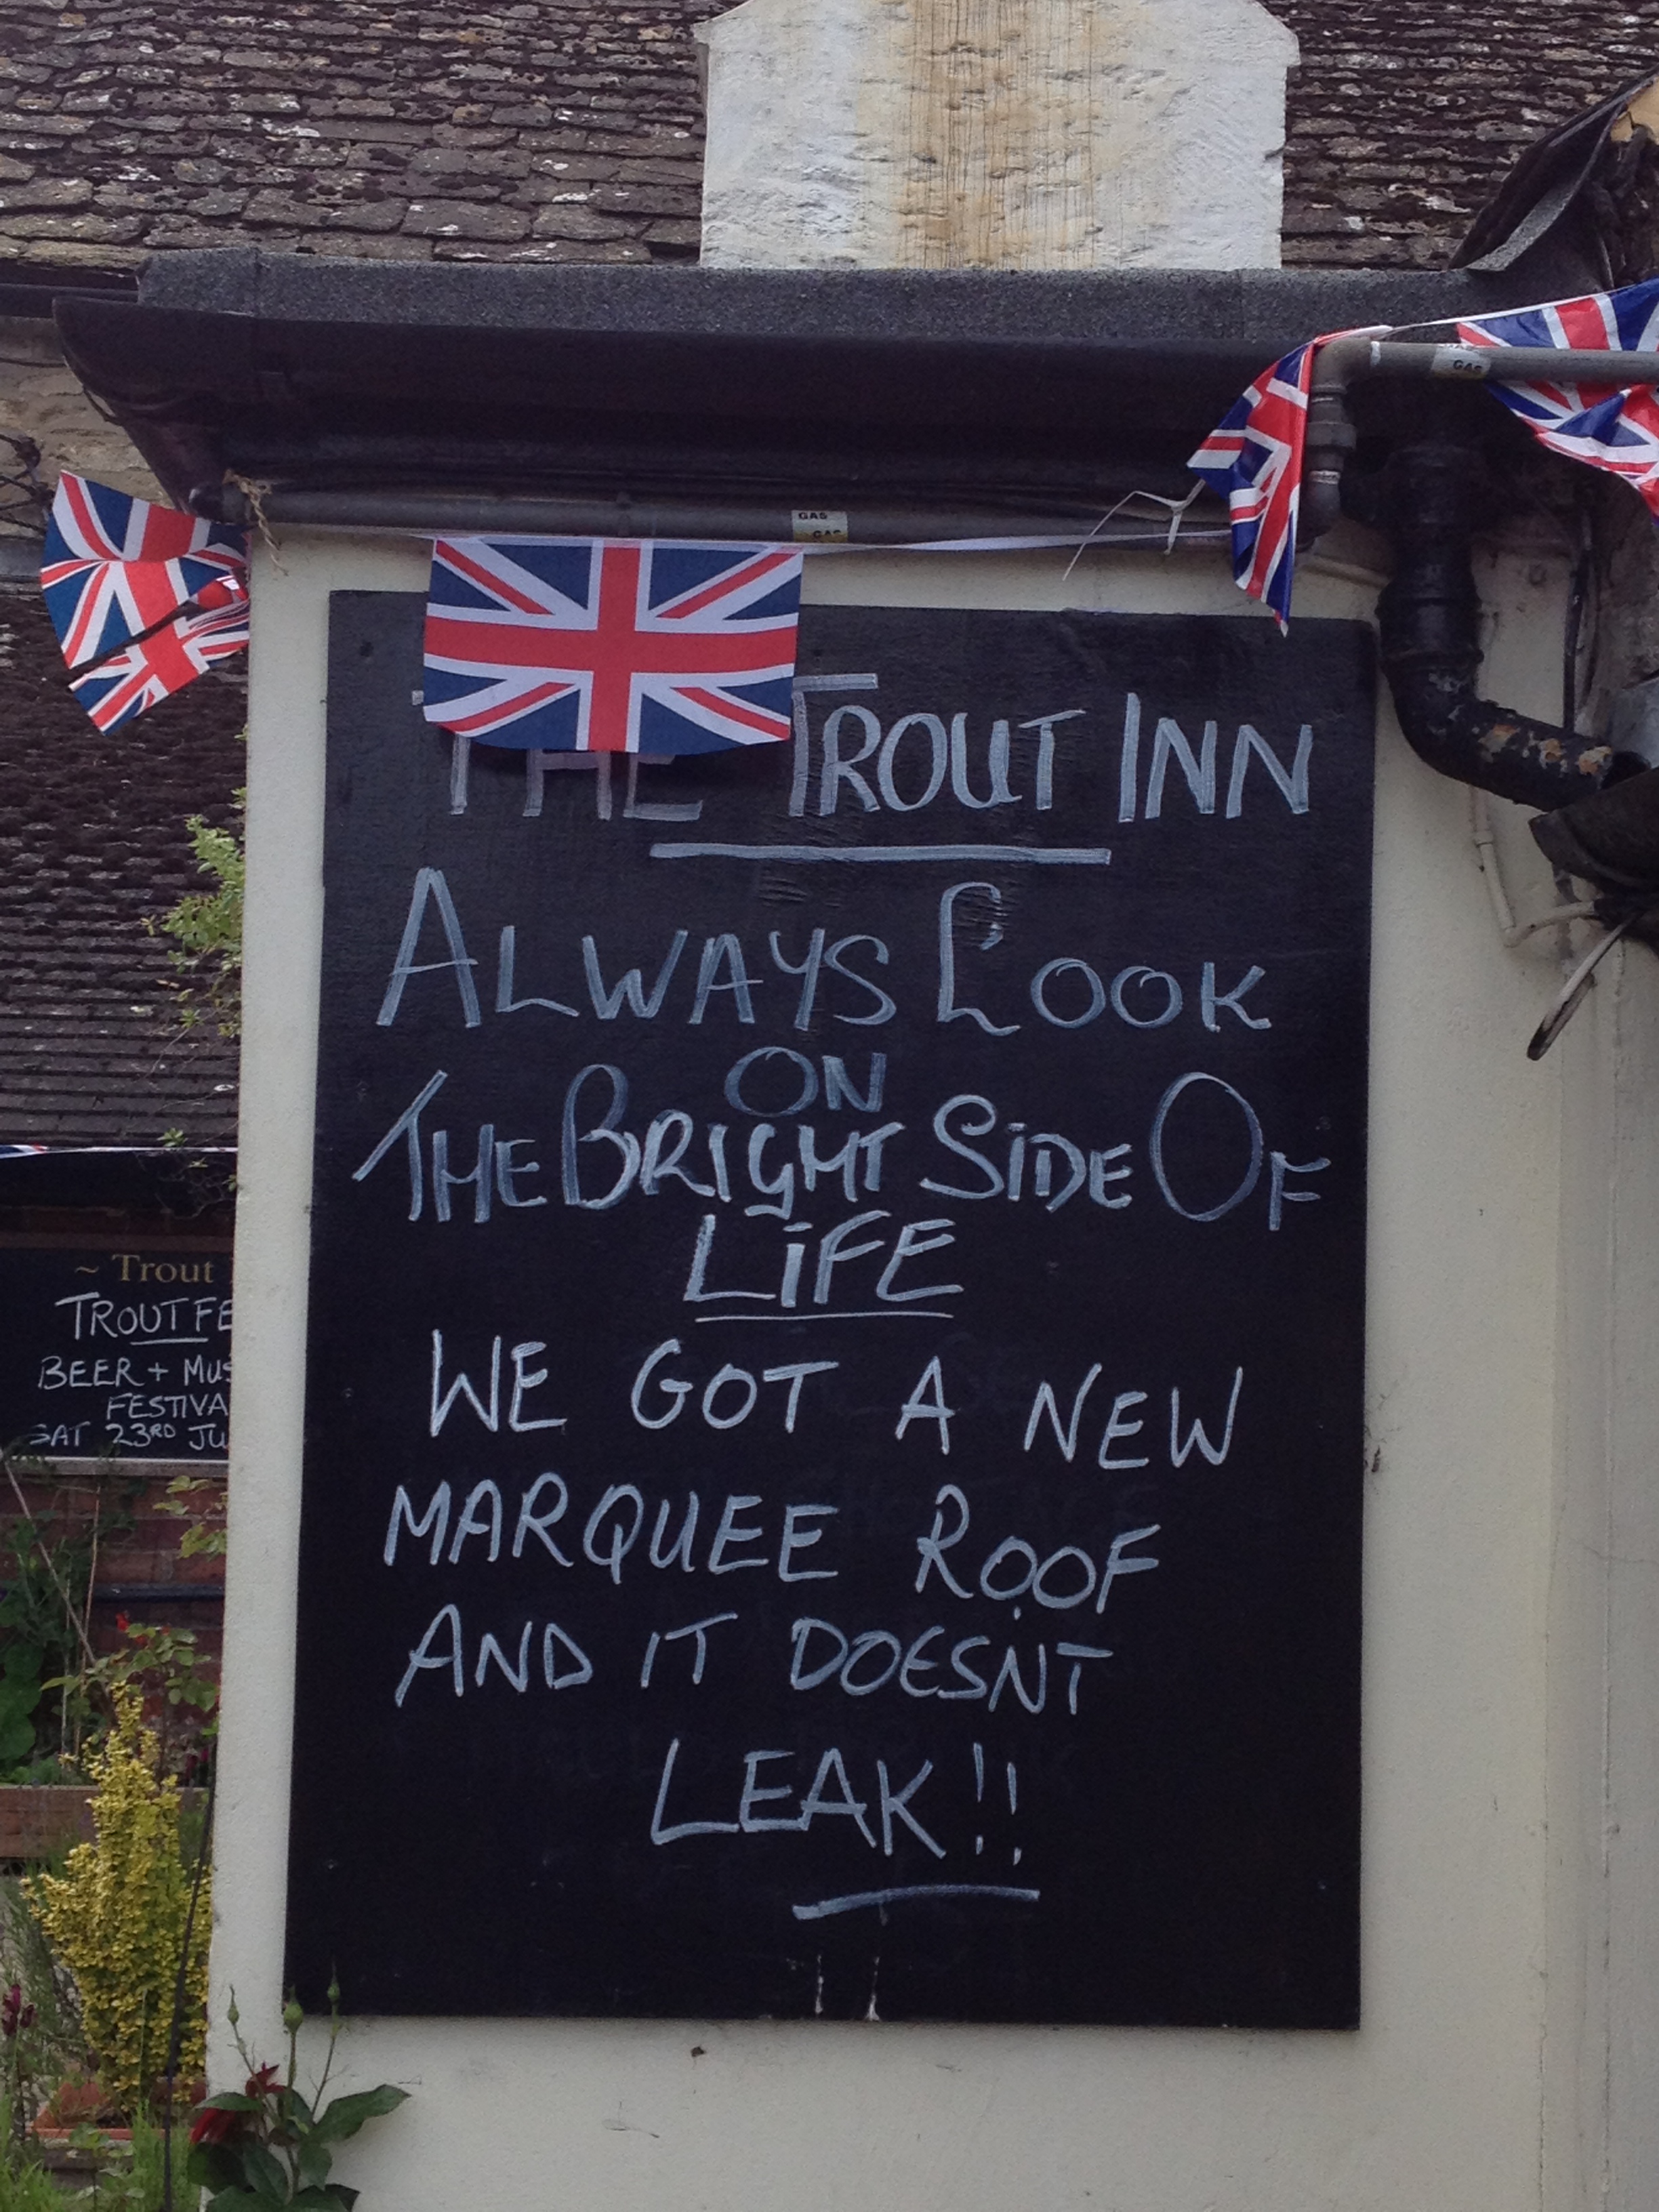 GAS
GAS
GAS
THE TROUT INN
ALWAYS LOOK
ON
THE BRIGHT SIDE OF
LIFE
WE GOT A NEW
MARQUEE ROOF
AND IT DOESNT
LEAK!!
~ Trout
TROUTFE
BEER + MUS
FESTIVA
SAT 23RD JU